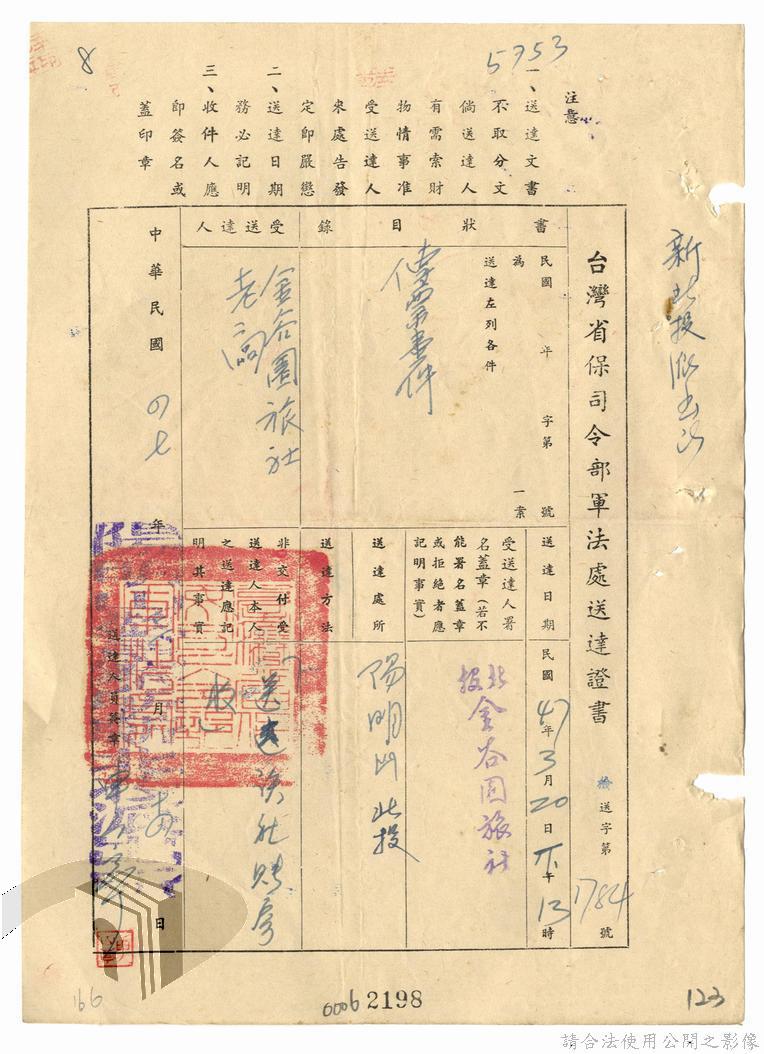 5753
8
注意
一、送達文書
不取分文
倘送達人
有需索財
物情事准
受送達人
來處告發
定即嚴懲
二、送達日期
務必記明
三、收件人應
即簽名或
蓋印章
新北投
台灣省保司令部軍法處送達證書
送字第1784號
書狀目錄
民國 年 字第 號
為 一案
送達左列各件
傳票壹件
受送達人
金谷園旅社
老高
送達日期
民國47年3月20日下午13時
受送達人署
名蓋章(若不
能署名蓋章
或拒絕者應
記明事實)
北投
金谷園旅社
送達處所
陽明山北投
送達方法
非交付受
送達人本人
之送達應記
明其事實
中華民國四七年 月 日
送達人員簽章
166
0006
2198
123
請合法使用公開之影像